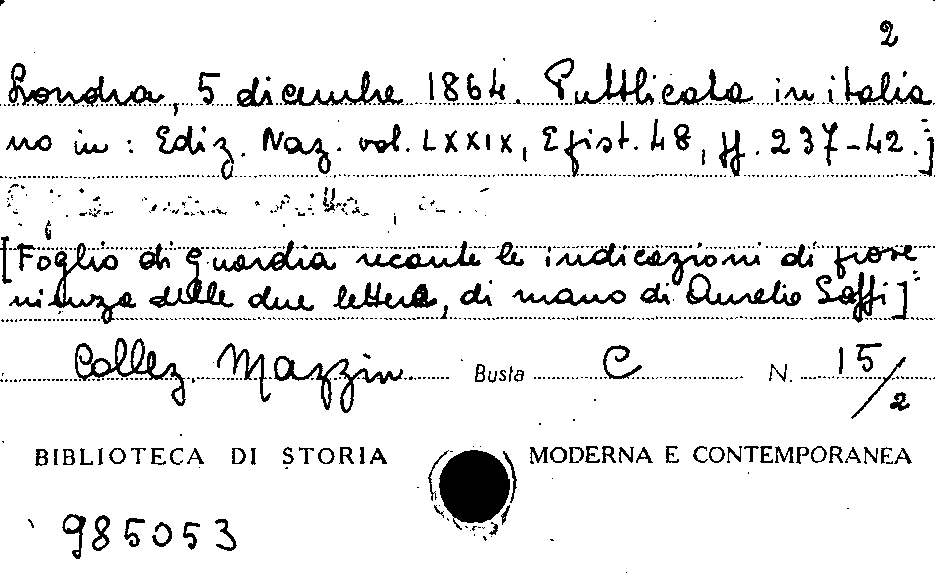 2
Londra, 5 dicembre 1864. Pubblicata in italia
no in: Ediz. Naz. vol. LXXIX, Epist. 48, pp. 237-42.]
[Foglio di guardia recante le indicazioni di prove
nienza delle due lettere, di mano di Aurelio Saffi]
Collez. Mazzin Busta C N. 15/2
BIBLIOTECA DI STORIA MODERNA E CONTEMPORANEA
985053